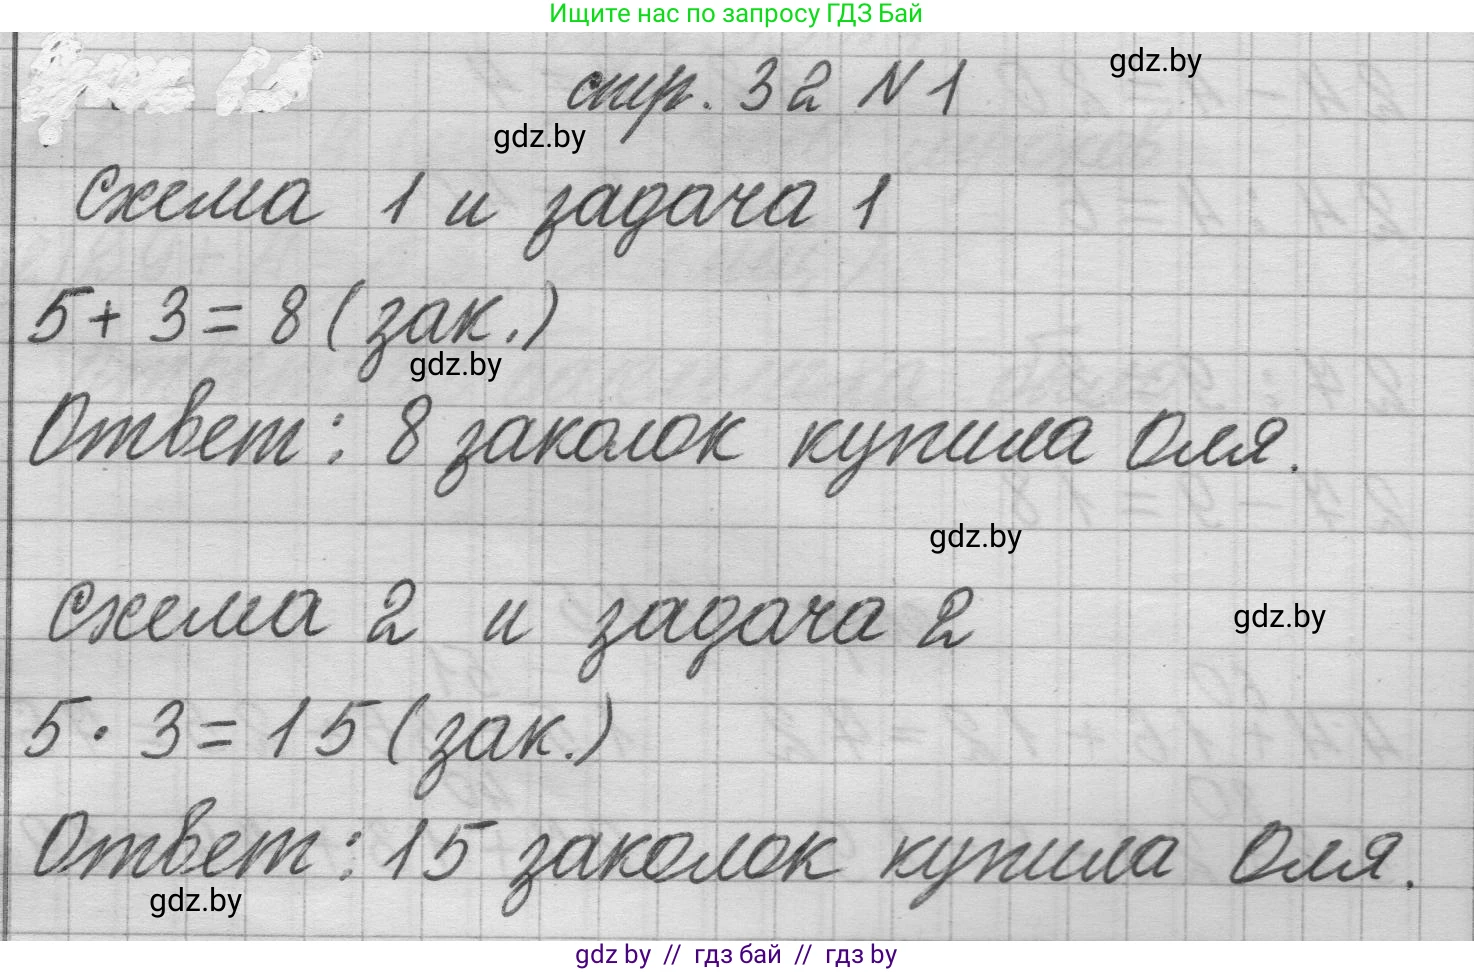 Ищите нас по запросу ГДЗ Бай
стр. 32 №1
gdz.by
gdz.by
Схема 1 и задача 1
5 + 3 = 8 (зак.)
gdz.by
Ответ: 8 заколок купила Оля.
gdz.by
Схема 2 и задача 2
gdz.by
5 · 3 = 15 (зак.)
Ответ: 15 заколок купила Оля.
gdz.by
gdz by // гдз бай // гдз by